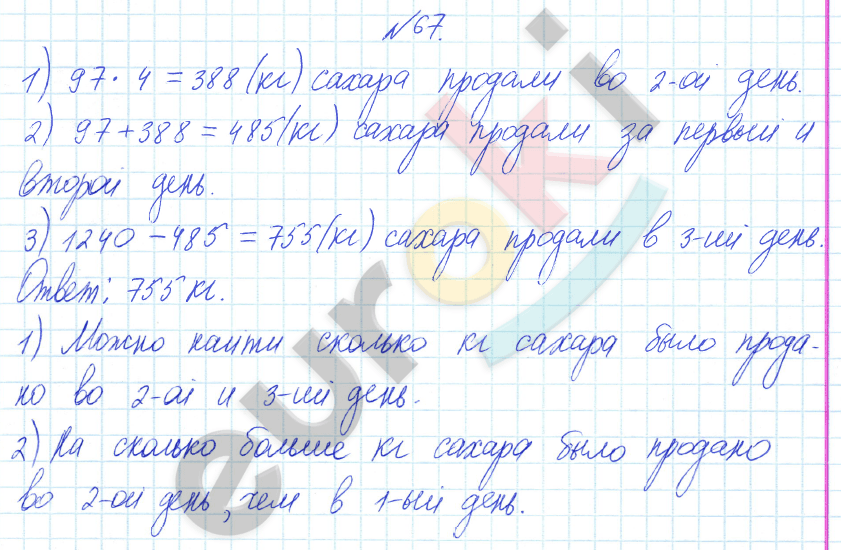 №67.
1) 97·4=388(кг) сахара продали во 2-ой день.
2) 97+388=485(кг) сахара продали за первый и
второй день.
3) 1240-485=755(кг) сахара продали в 3-ий день.
Ответ: 755 кг.
1) Можно найти сколько кг сахара было прода-
но во 2-ой и 3-ий день.
2) На сколько больше кг сахара было продано
во 2-ой день, чем в 1-ый день.
euroki